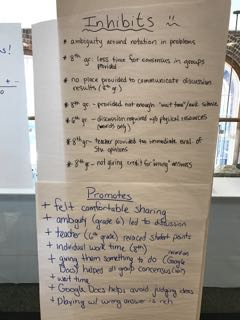 Inhibits
* ambiguity around notation in problems
* 8th gr: less time for consensus in groups
provided
* no place provided to communicate discussion
results (8th gr.)
* 8th gr - provided not enough "wait time"/awk. silence
* 6th gr - discussion required physical resources
(words only)
* 8th gr - teacher provided the immediate eval. of
stu opinions
* 8th gr - not giving credit for "wrong" answers
Promotes
+ felt comfortable sharing
+ ambiguity (grade 6) led to discussion
+ teacher (6th grade) revoiced student points
+ individual work time (8th)
+ giving them something to do (Google
Docs) helped all group consensus
+ wait time
+ Google Docs helps avoid judging ideas
+ Playing w/ wrong answer is rich